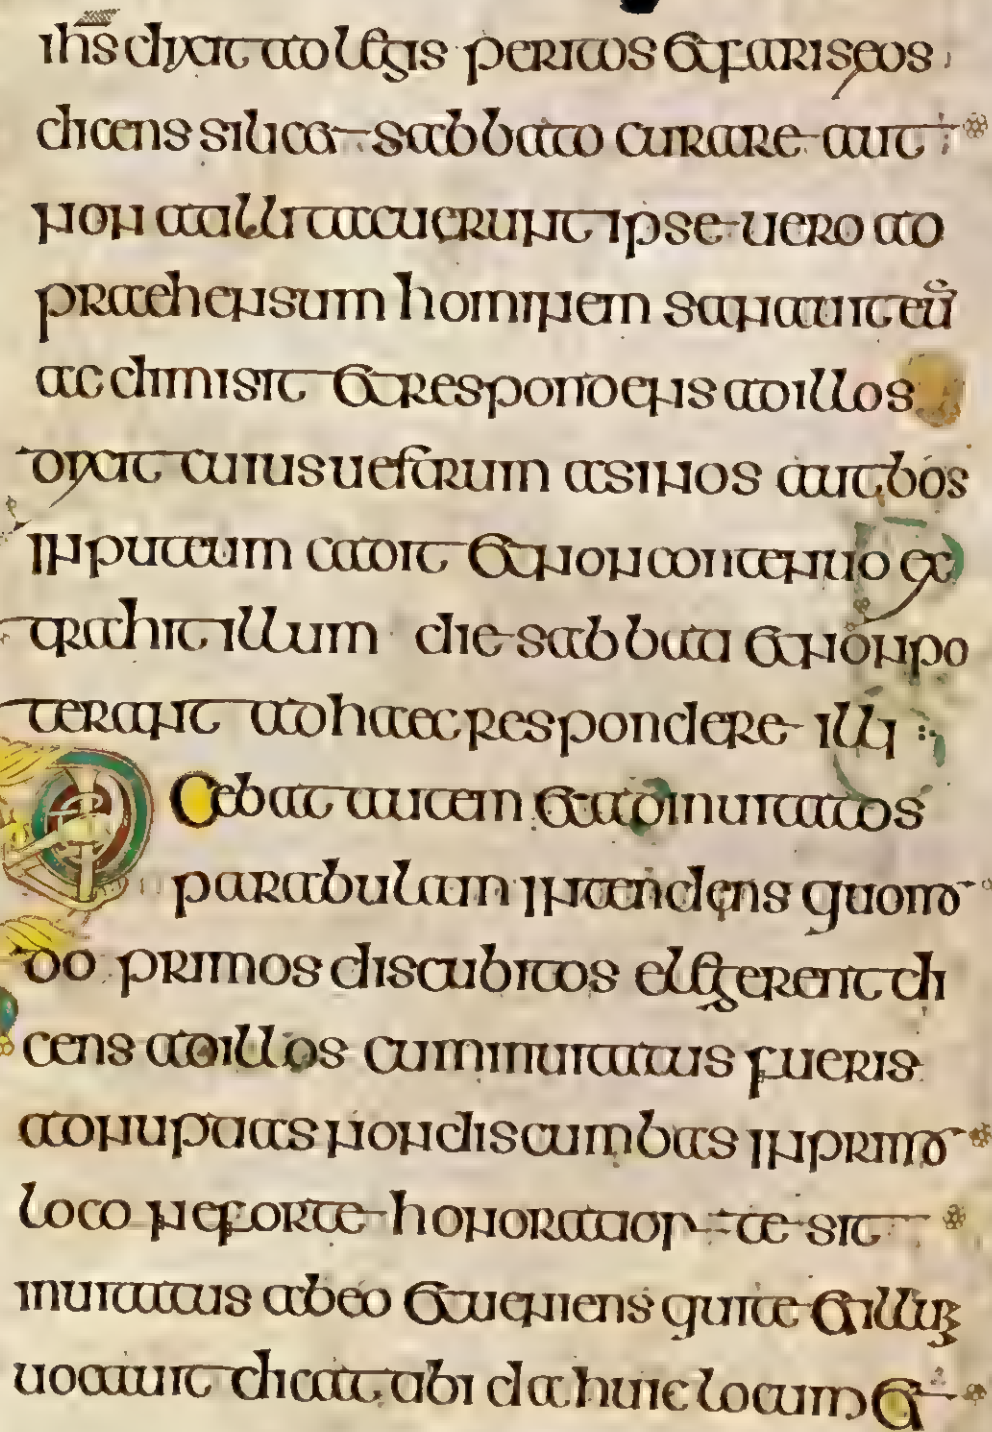 ihs dixit ad legis peritos et farisseos
dicens si licet sabbato curare aut
non at illi tacuerunt ipse vero ad
praehensum hominem sanavit eu
ac dimisit et respondens ad illos
dixit cuius uestrum asinos aut bos
in puteum cadit et non continuo ex
trahit illum die sabbati et non po
terant ad haec respondere illi
Dicebat autem et ad invitatos
parabulam intendens quomo
do primos discubitos eligerent di
cens ad illos cum invitatus fueris
ad nuptias non discumbas in primo
loco ne forte honoratior te sit
invitatus ab eo et veniens qui te et illum
vocavit dicat tibi da huic locum et